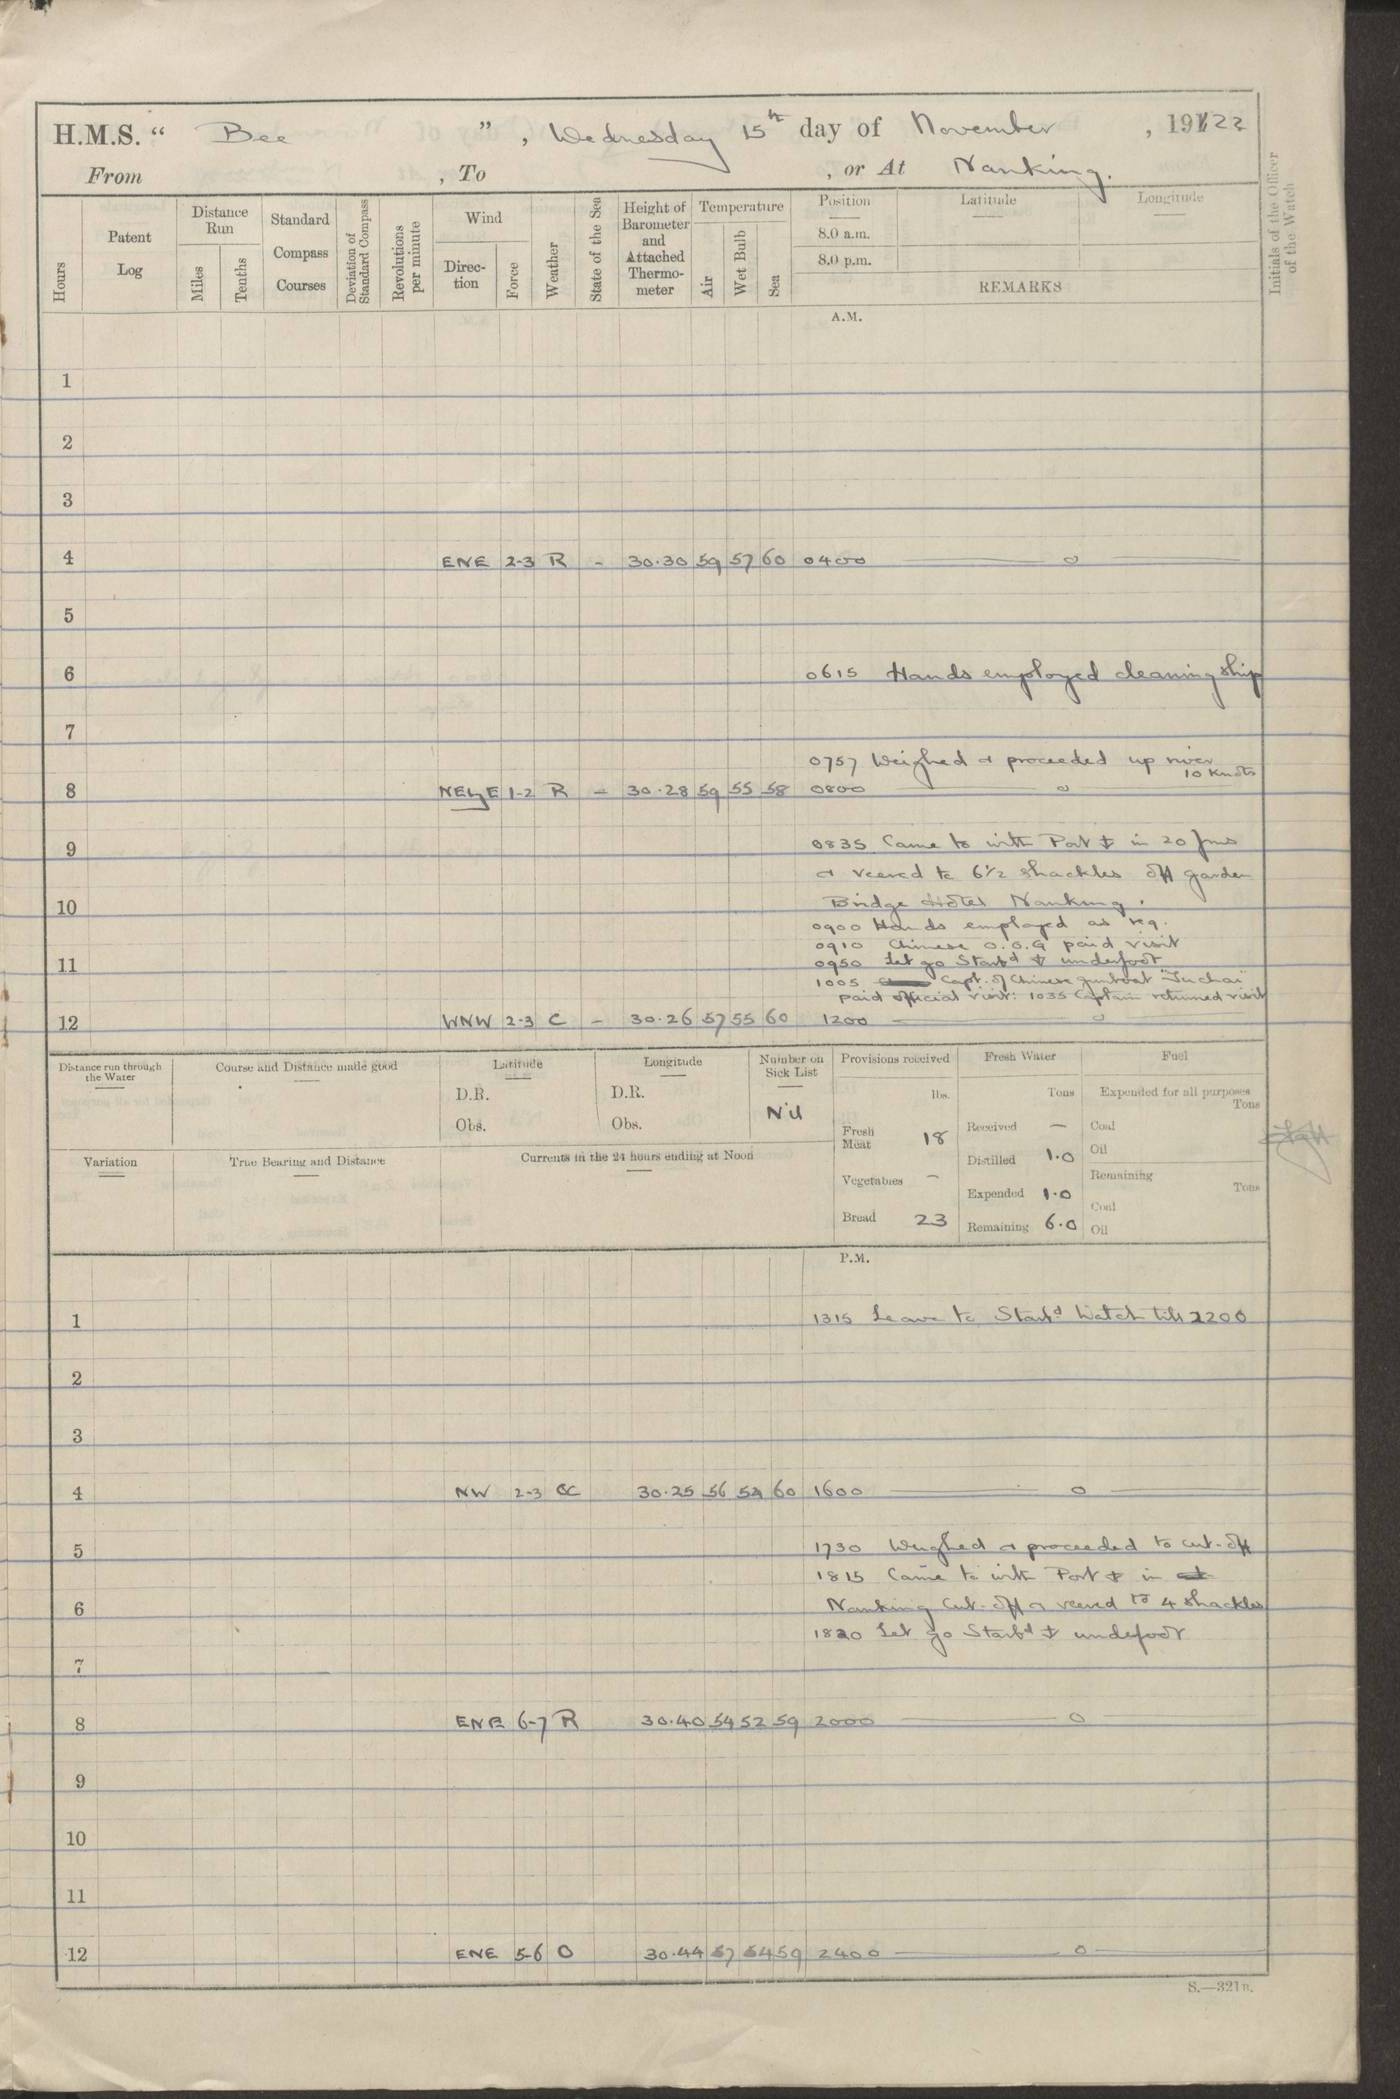 H.M.S. “ Bee ” , Wednesday 15th day of November , 1922
From , To , or At Nanking.
Hours
Patent Log
Distance Run
Miles
Tenths
Standard Compass Courses
Deviation of Standard Compass
Revolutions per minute
Wind
Direction
Force
Weather
State of the Sea
Height of Barometer and Attached Thermometer
Temperature
Air
Wet Bulb
Sea
Position
8.0 a.m.
8.0 p.m.
Latitude
Longitude
REMARKS
Initials of the Officer of the Watch
A.M.
1
2
3
4 ENE 2-3 R - 30.30 59 57 60 0400 o
5
6 0615 Hands employed cleaning ship
7
0757 Weighed & proceeded up river
10 Knots
8 NEbyE 1-2 R - 30.28 59 55 58 0800 o
9 0835 Came to with Port ⚓ in 20 fms
& veered to 6½ shackles off garden
10 Bridge Hotel Nanking.
0900 Hands employed as req.
0910 Chinese O.O.G paid visit
11 0950 Let go Starbd ⚓ underfoot
1005 Capt. of Chinese gunboat
paid official visit: 1035 Captain returned visit
12 WNW 2-3 C - 30.26 57 55 60 1200 o
Distance run through the Water
Course and Distance made good
Latitude
D.R.
Obs.
Longitude
D.R.
Obs.
Number on Sick List
Nil
Provisions received
lbs.
Fresh Meat 18
Vegetables -
Bread 23
Fresh Water
Tons
Received -
Distilled 1.0
Expended 1.0
Remaining 6.0
Fuel
Expended for all purposes
Tons
Coal
Oil
Remaining
Tons
Coal
Oil
Variation
True Bearing and Distance
Currents in the 24 hours ending at Noon
P.M.
1 1315 Leave to Starbd Watch till 2200
2
3
4 NW 2-3 OC 30.25 56 52 60 1600 o
5 1730 Weighed & proceeded to cut-off
1815 Came to with Port ⚓ in
6 Nanking Cut-off & veered to 4 shackles
1820 Let go Starbd ⚓ undefoot
7
8 ENE 6-7 R 30.40 54 52 59 2000 o
9
10
11
12 ENE 5-6 O 30.44 57 54 59 2400 o
S.—321B.